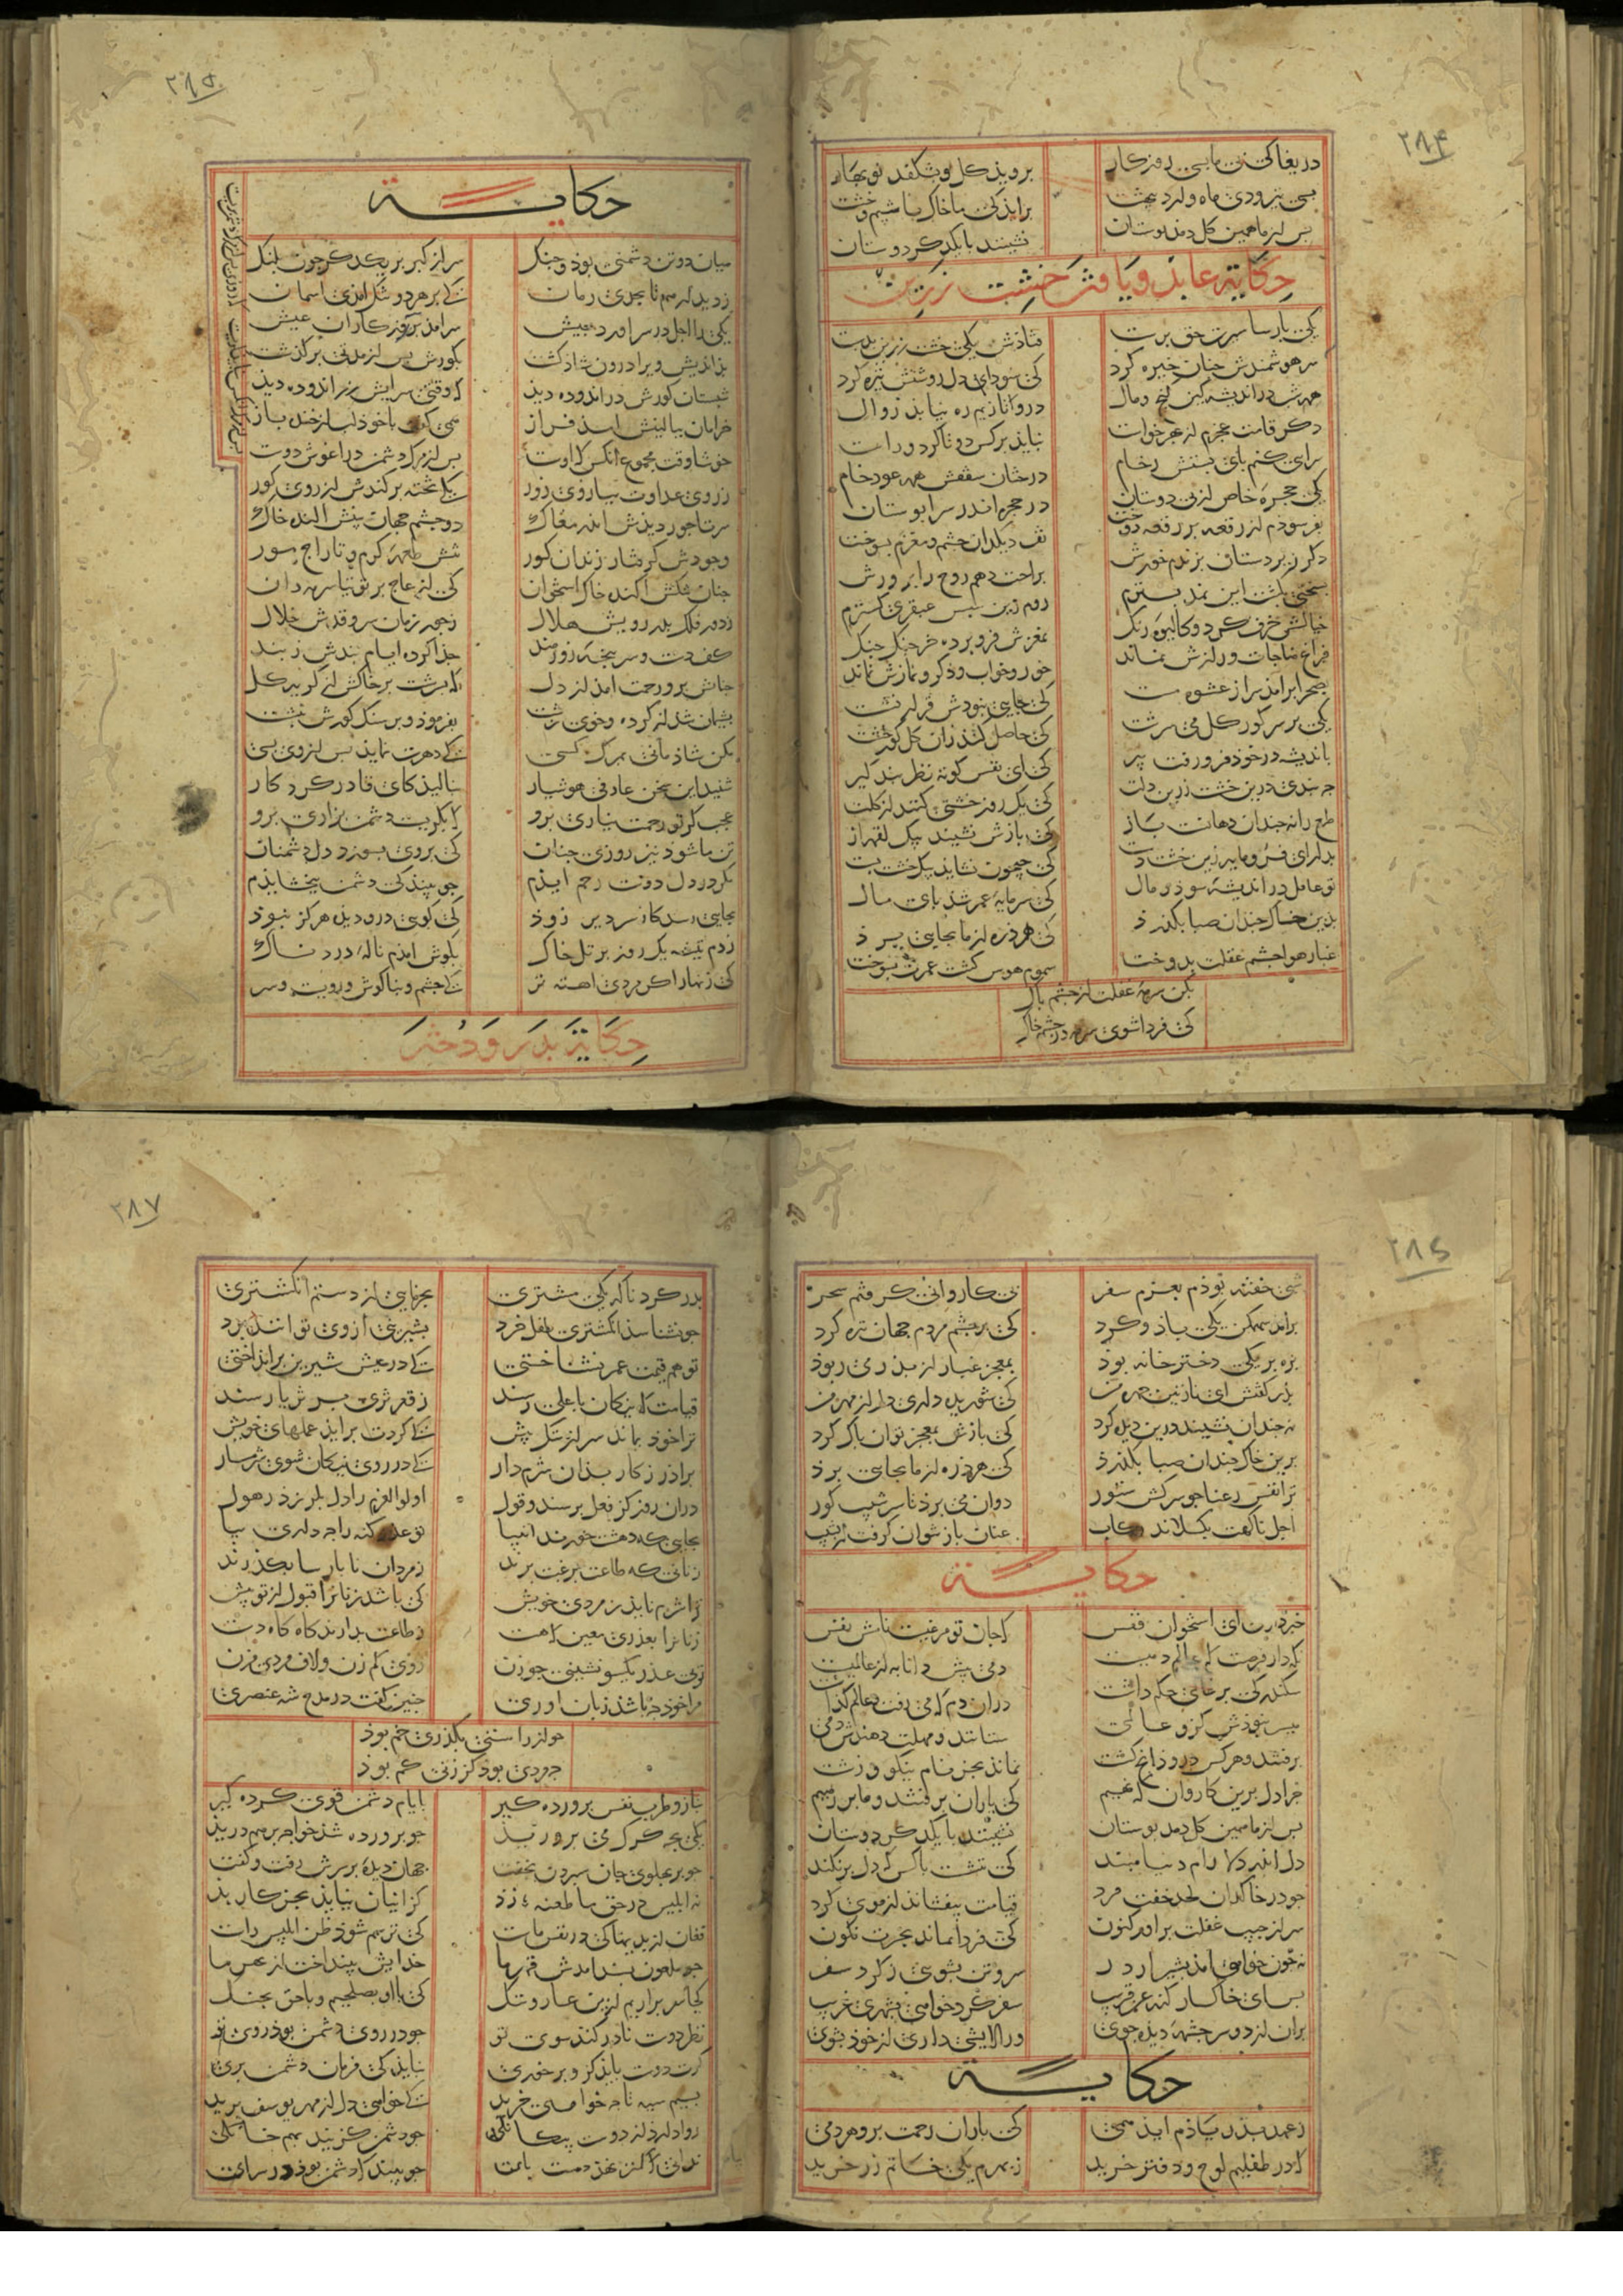 ۲۸۴
دریغا کی بی مابسی روزکار بروید کل و بشکفد نوبهار
بسی تیر ودی ماه واردبهشت براید کی ما خاک باشیم وخشت
بس از ما همین کل دمد بوستان نشینند با یکدکر دوستان
حکایة عابد ویافتن خشت زرین
یکی بارسا سیرت حق برست فتادش یکی خشت زرین بدست
سر هوشمندش جنان خیره کرد کی سودای دل روشنش تیره کرد
همه شب در اندیشه کین کنج ومال درو تا زیم ره نیابد زوال
دکر قامت عجزم از بهر خواست نباید بر کس دوتا کرد وراست
سرای کنم بای بستش رخام درختان سقفش همه عود خام
یکی حجرهٔ خاص از بی دوستان در حجره اندر سرابوستان
بفرسودم از رقعه بر رقعه دوخت تف دیکدان جشم ومغزم بسوخت
دکر زیردستان بزندم خورش براحت دهم روح را برورش
بسختی بکشت این نمد بسترم روم زین سبس عبقری کسترم
خیالش خرف کرد وکالیوه رنک بمغزش فرو برده خرجنک جنک
فراغ مناجات ورازش نماند خور وخواب وذکر ونمازش نماند
بصحرا برامذ سر از عشوه مست کی جایی نبودش قرار نشست
یکی بر سر کور کل می سرشت کی حاصل کند زان کل کور خشت
باندیشه در خوذ فرو رفت پیر کی ای نفس کوته نظر بند کیر
جه بندی درین خشت زرین دلت کی یک روز خشتی کنند از کلت
طمع را نه جندان دهانست باز کی بازش نشیند بیک لقمه از
بدار ای فرومایه زین خشت دست کی جیحون نشاید بیک خشت بست
تو غافل در اندیشهٔ سود ومال کی سرمایهٔ عمر شذ بای مال
بذین خاک جندان صبا بکذرذ کی هر ذره از ما بجایی برذ
غبار هوا جشم عقلت بدوخت سموم هوس کشت عمرت بسوخت
بکن سرمهٔ غفلت از جشم باک
کی فردا شوی سرمه در جشم خاک
۲۸۵
حکایة
میان دو تن دشمنی بوذ وجنک سر از کبر بر یکدکر جون بلنک
ز دیدار هم تا بحدی رمان کی بر هر دو تنک امذی اسمان
یکی را اجل در سر اورد جیش سرامذ برو روزکاران عیش
بذاندیش ویرا درون شاذ کشت بکورش پس از مدتی برکذشت
شبستان کورش در اندوده دیذ که وقتی سرایش زر اندوده دیذ
خرامان ببالینش امذ فراز همی کفت با خوذ لب از خنده باز
خوشا وقت مجموع انکس که اوست بس از مرک دشمن در اغوش دوست
ز روی عداوت ببازوی زور یکی تخته برکندش از روی کور
سر تاجور دیذش اندر مغاک دو جشم جهان بینش اکنده خاک
وجودش کرفتار زندان کور تنش طعمهٔ کرم وتاراج مور
جنان تنکش اکنده خاک استخوان کی از عاج بر توتیا سرمه دان
ز دور فلک بدر رویش هلال ز جور زمان سرو قدش خلال
کف دست وسر بنجهٔ زورمند جذا کرده ایام بندش ز بند
جنانش برو رحمت امذ از دل که بسرشت بر خاکش از کریه کل
بشیمان شذ از کرده وخوی زشت بفرموذ وبر سنک کورش نبشت
مکن شاذمانی بمرک کسی کی دهرت نمایذ بس از وی بسی
شنید این سخن عارفی هوشیار بنالیذ کای قادر کردکار
عجب کر تو رحمت نیاری برو که بکریست دشمن بزاری برو
تن ما شوذ نیز روزی جنان کی بروی بسوزد دل دشمنان
مکر در دل دوست رحم ایذم جو بینذ کی دشمن ببخشایذم
بجایی رسد کار سر دیر وزوذ کی کویی درو دیذه هرکز نبوذ
زدم تیشه یک روز بر تل خاک بکوش امذم نالهٔ دردناک
کی زنهار اکر مردی اهسته تر کی جشم وبناکوش ورویست وسر
حکایة بدر ودختر
۲۸۶
شبی خفته بوذم بعزم سفر بی کاروانی کرفتم سحر
برامذ سهمکن یکی باد وکرد کی بر جشم مردم جهان تیره کرد
بره بر یکی دختر خانه بوذ بمعجر غبار از بدر می ربوذ
بدر کفتش ای نازنین جهر من کی شوریده داری دل از مهر من
نه جندان نشیند درین دیده کرد کی بازش بمعجر توان باک کرد
برین خاک جندان صبا بکذرذ کی هر ذره از ما بجایی برذ
ترا نفس رعنا جو سرکش ستور دوان می برذ تا سر شیب کور
اجل ناکهت بکسلاند رکاب عنان باز نتوان کرفت از نشیب
حکایة
خبر داری ای استخوان قفس که جان تو مرغیست نامش نفس
نکه دار فرصت که عالم دمیست دمی پیش دانا به از عالمیست
سکندر کی بر عالمی حکم داشت دران دم که می رفت وعالم کذاشت
میسر نبوذش کزو عالمی ستانند ومهلت دهندش دمی
برفتند وهر کس درود انچ کشت نماند بجز نام نیکو وزشت
جرا دل برین کاروان که نهیم کی یاران برفتند وما بر رهیم
بس از ما همین کل دمد بوستان نشینند با یکدکر دوستان
دل اندر دلارام دنیا مبند کی ننشست با کس کی دل برنکند
جو در خاکدان لحد خفت مرد قیامت بیفشاند از موی کرد
سر از جیب غفلت براور کنون کی فردا نماند بحسرت نکون
نه جون خواهی امذ بشیراز در سر وتن بشویی ز کرد سفر
بس ای خاکسار کنه عنقریب سفر کرد خواهی بشهری غریب
بران از دو سرجشمهٔ دیذه جوی ور الایشی داری از خوذ بشوی
حکایة
ز عهد بذر یاذم ایذ همی کی باران رحمت برو هر دمی
که در طفلیم لوح ودفتر خرید ز بهرم یکی خاتم زر خرید
۲۸۷
بدر کرد ناکه یکی مشتری بخرمایی از دستم انکشتری
جو نشناسد انکشتری طفل خرد بشیرینی از وی توانند برد
تو هم قیمت عمر نشناختی کی در عیش شیرین برانداختی
قیامت که نیکان باعلی رسند ز قعر ثری بر ثریا رسند
ترا خوذ بماند سر از ننک بیش کی کردت براید عملهای خویش
براذر ز کار بدان شرم دار کی در روی نیکان شوی شرمسار
دران روز کز فعل برسند وقول اولوالعزم را دل بلرزد ز هول
بجایی که دهشت خورند انبیا تو عذر کنه را جه داری بیا
زنانی که طاعت برغبت برند ز مردان نابارسا بکذرند
ترا شرم نایذ ز مردی خویش کی باشد زنانرا قبول از تو بیش
زنانرا بعذری معین که هست ز طاعت بدارند کاه کاه دست
توی عذر یکسو نشینی جو زن روی کم ز زن ولاف مردی مزن
مرا خوذ جه باشد زبان اوری جنین کفت در مدح شه عنصری
جو از راستی بکذری خم بوذ
جه مردی بوذ کز زنی کم بوذ
بناز وطرب نفس برورده کیر بایام دشمن قوی کرده کیر
یکی بجه کرک می بروریذ جو برورده شذ خواجه بر هم دریذ
جو بر بهلوی جان سبردن بخفت جهان دیده بر سرش رفت وکفت
نه ابلیس در حق ما طعنه زذ کز اینان نیایذ بجز کار بذ
فغان از بدیها کی در نفس ماست کی ترسم شوذ ظن ابلیس راست
جو ملعون بسند امدش قهر ما خدایش بینداخت از بهر ما
کجا سر براریم ازین عار وننک کی با او بصلحیم وبا حق بجنک
نظر دوست نادر کند سوی تو جو در روی دشمن بوذ روی تو
کرت دوست بایذ کزو بر خوری نبایذ کی فرمان دشمن بری
بسیم سیه تا جه خواهی خرید کی خواهی دل از مهر یوسف برید
روا دارذ از دوست بیکانکی جو دشمن کزیند بهم خانکی
ندانی که کمتر نهد دوست بای جو بیند که دشمن بوذ در سرای